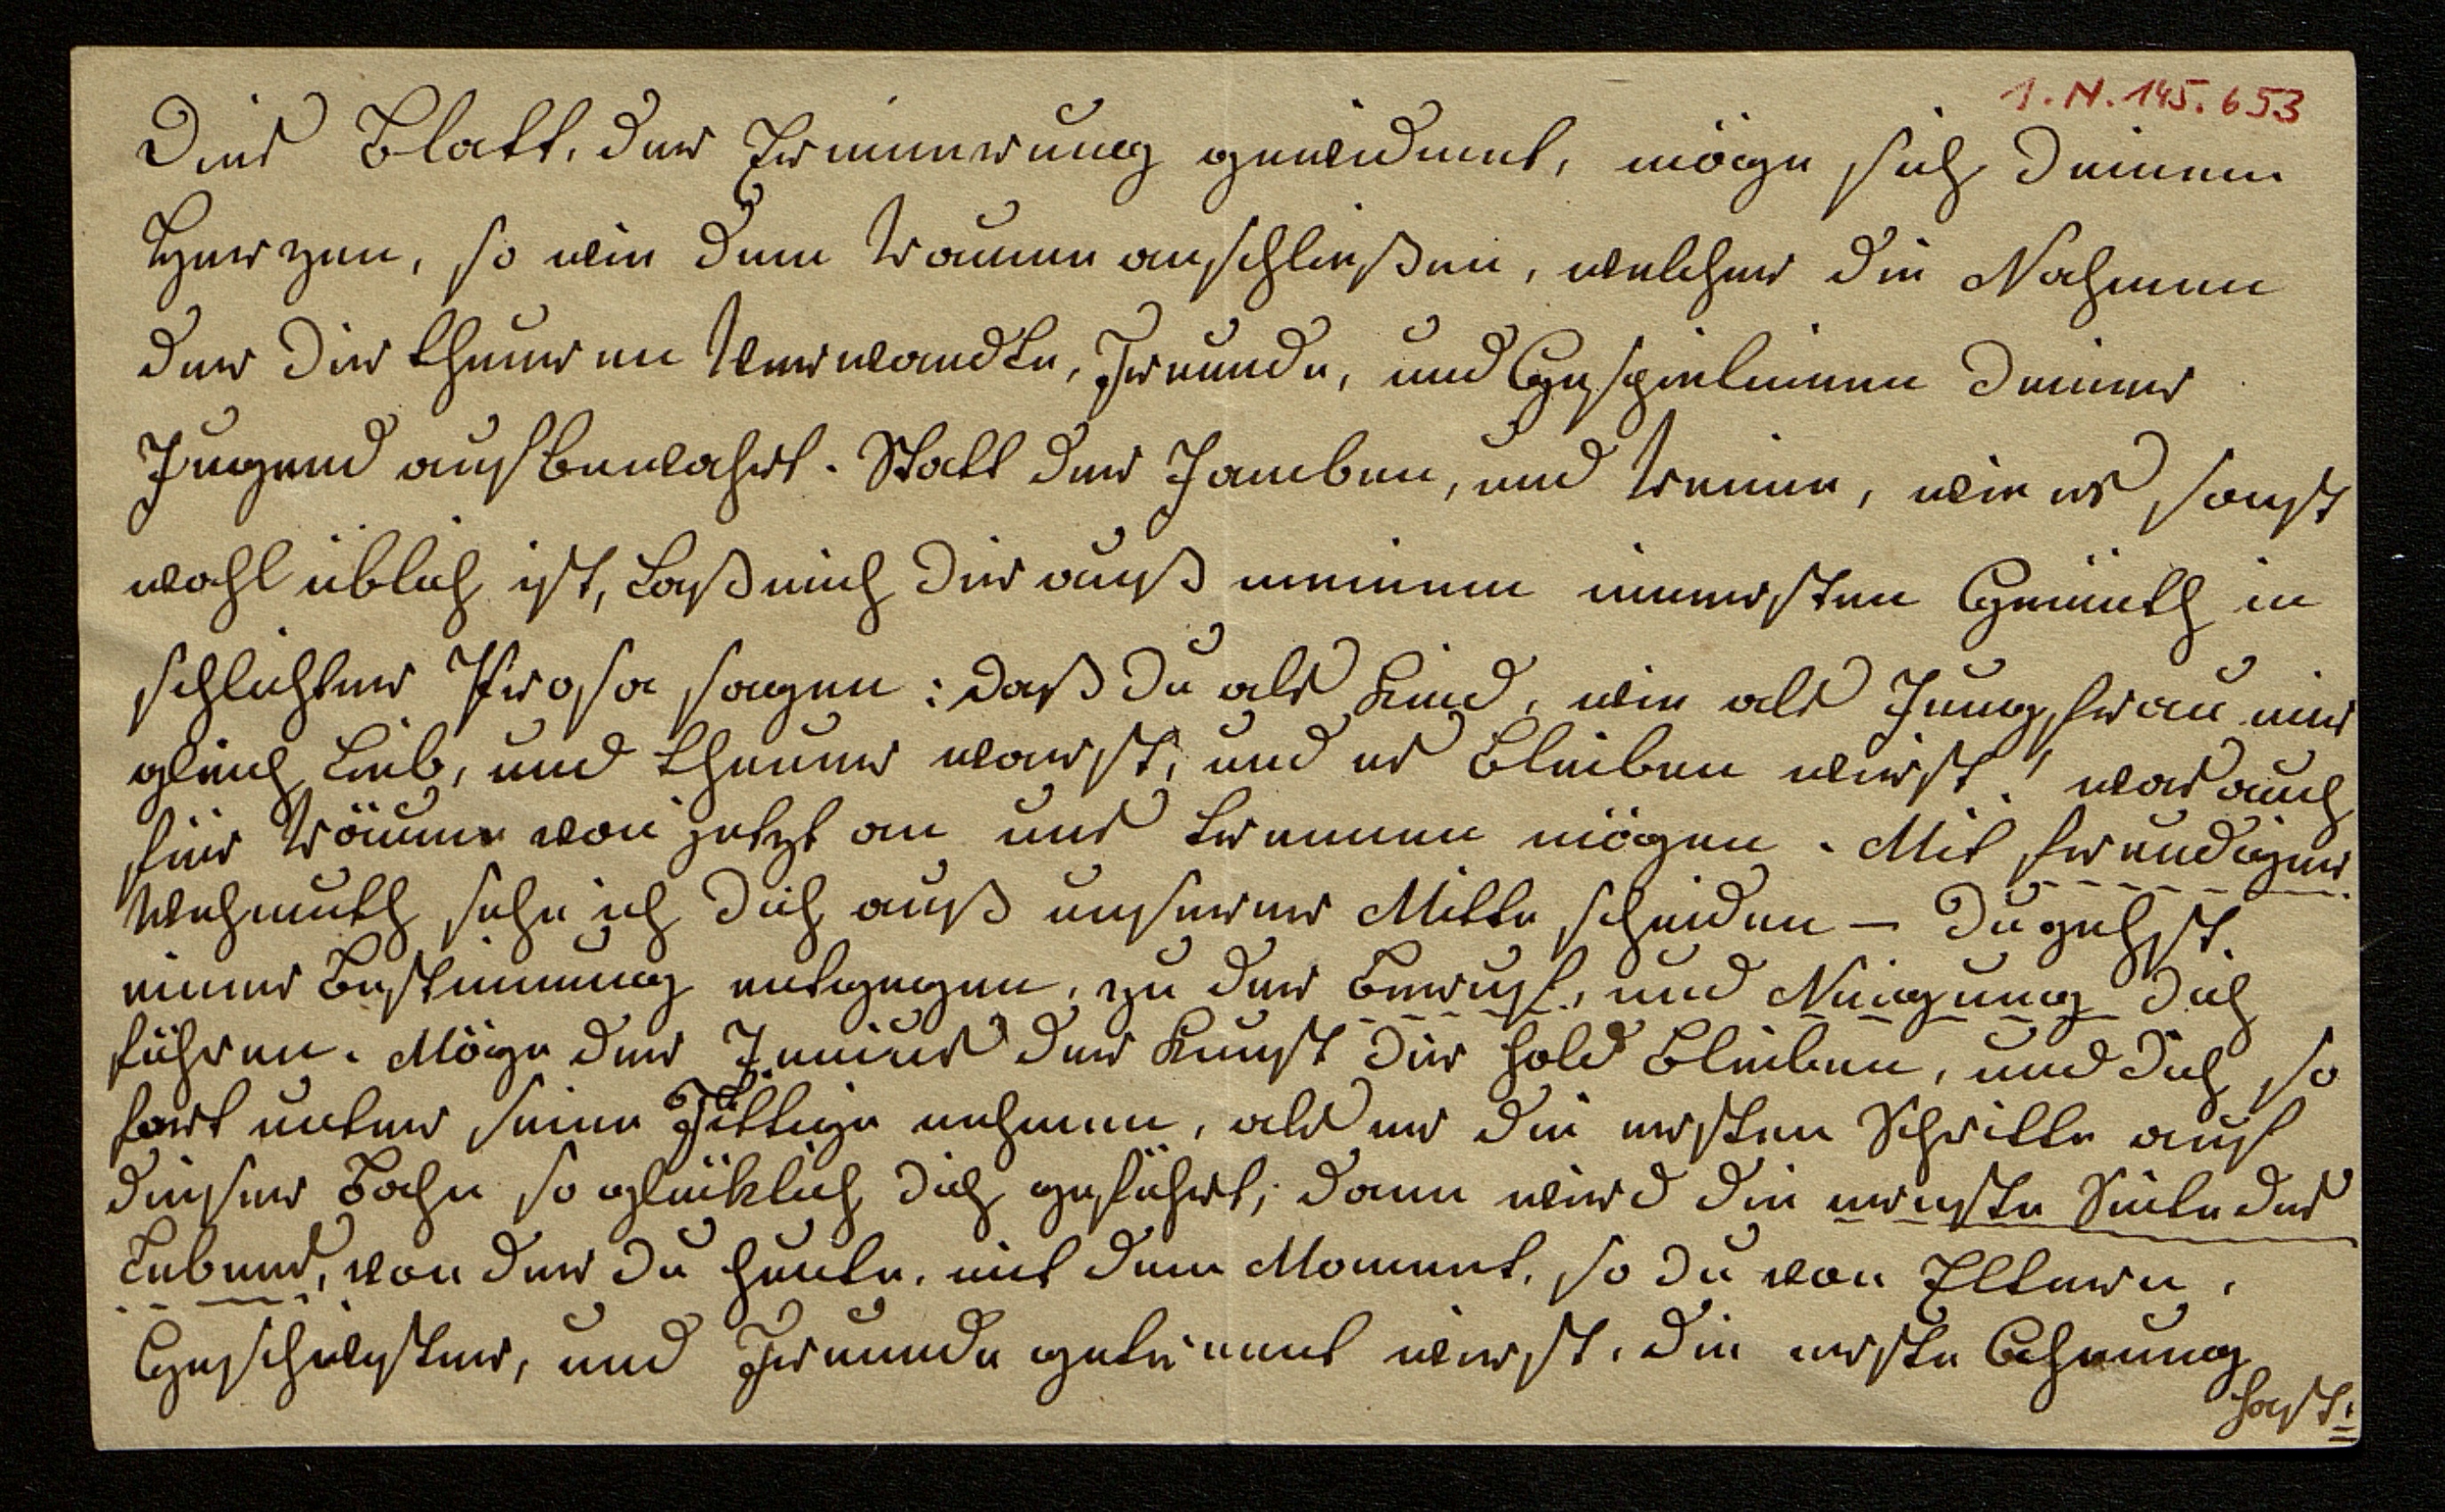 I.N. 145.653
Dies Blatt, der Erinnerung geweidmet, möge sich Deinem
Herzen, so wie dem Raume anschließen, welcher die Nahmen
der Dir theuren Verwandte, Freunde, und Gespielinnen Deiner
Jugend aufbewahrt. Statt der Jamben, und Reime, wie es sonst
wohl üblich ist, Laß mich Dir auß meinem innersten Gemüth in
schlichter Prosa sagen: daß Du als Kind, wie als Jungfrau mir
gleich Lieb, und theuer warst, und es bleiben wirst! was auch
für Räume von jetzt an uns trennen mögen. Mit freudiger
Wehmuth sehe ich Dich auß unserer Mitte scheiden – Du gehst
einer Bestimmung entgegen, zu der Beruf, und Neigung Dich
führen. Möge der Jenius der Kunst Dir hold bleiben, und Dich so
fort unter seine Fittige nehmen, als er die ersten Schritte auf
dieser Bahn so glücklich Dich geführt; dann wird die ernste Seite des
Lebens, von der Du heute, mit dem Moment, so Du von Eltern,
Geschwister, und Freunde getrennt wirst, die erste Ahnung
hast: